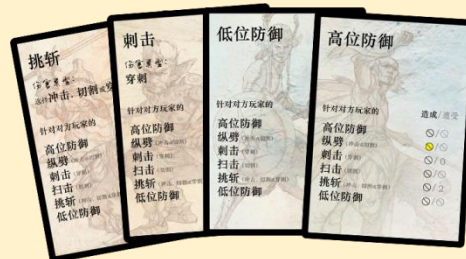 挑斩
伤害类型:
选择冲击, 切割或穿
针对对方玩家的
高位防御
纵劈
刺击
扫击
挑斩
低位防御
刺击
伤害类型:
穿刺
针对对方玩家的
高位防御
纵劈
刺击
扫击
挑斩
低位防御
低位防御
针对对方玩家的
高位防御
纵劈(冲击或切割)
刺击(穿刺)
扫击(切割)
挑斩(冲击, 切割或穿刺)
低位防御
高位防御
造成/遭受
针对对方玩家的
高位防御
纵劈(冲击或切割)
刺击(穿刺) /0
扫击(切割)
挑斩(冲击, 切割或穿刺) /2
低位防御